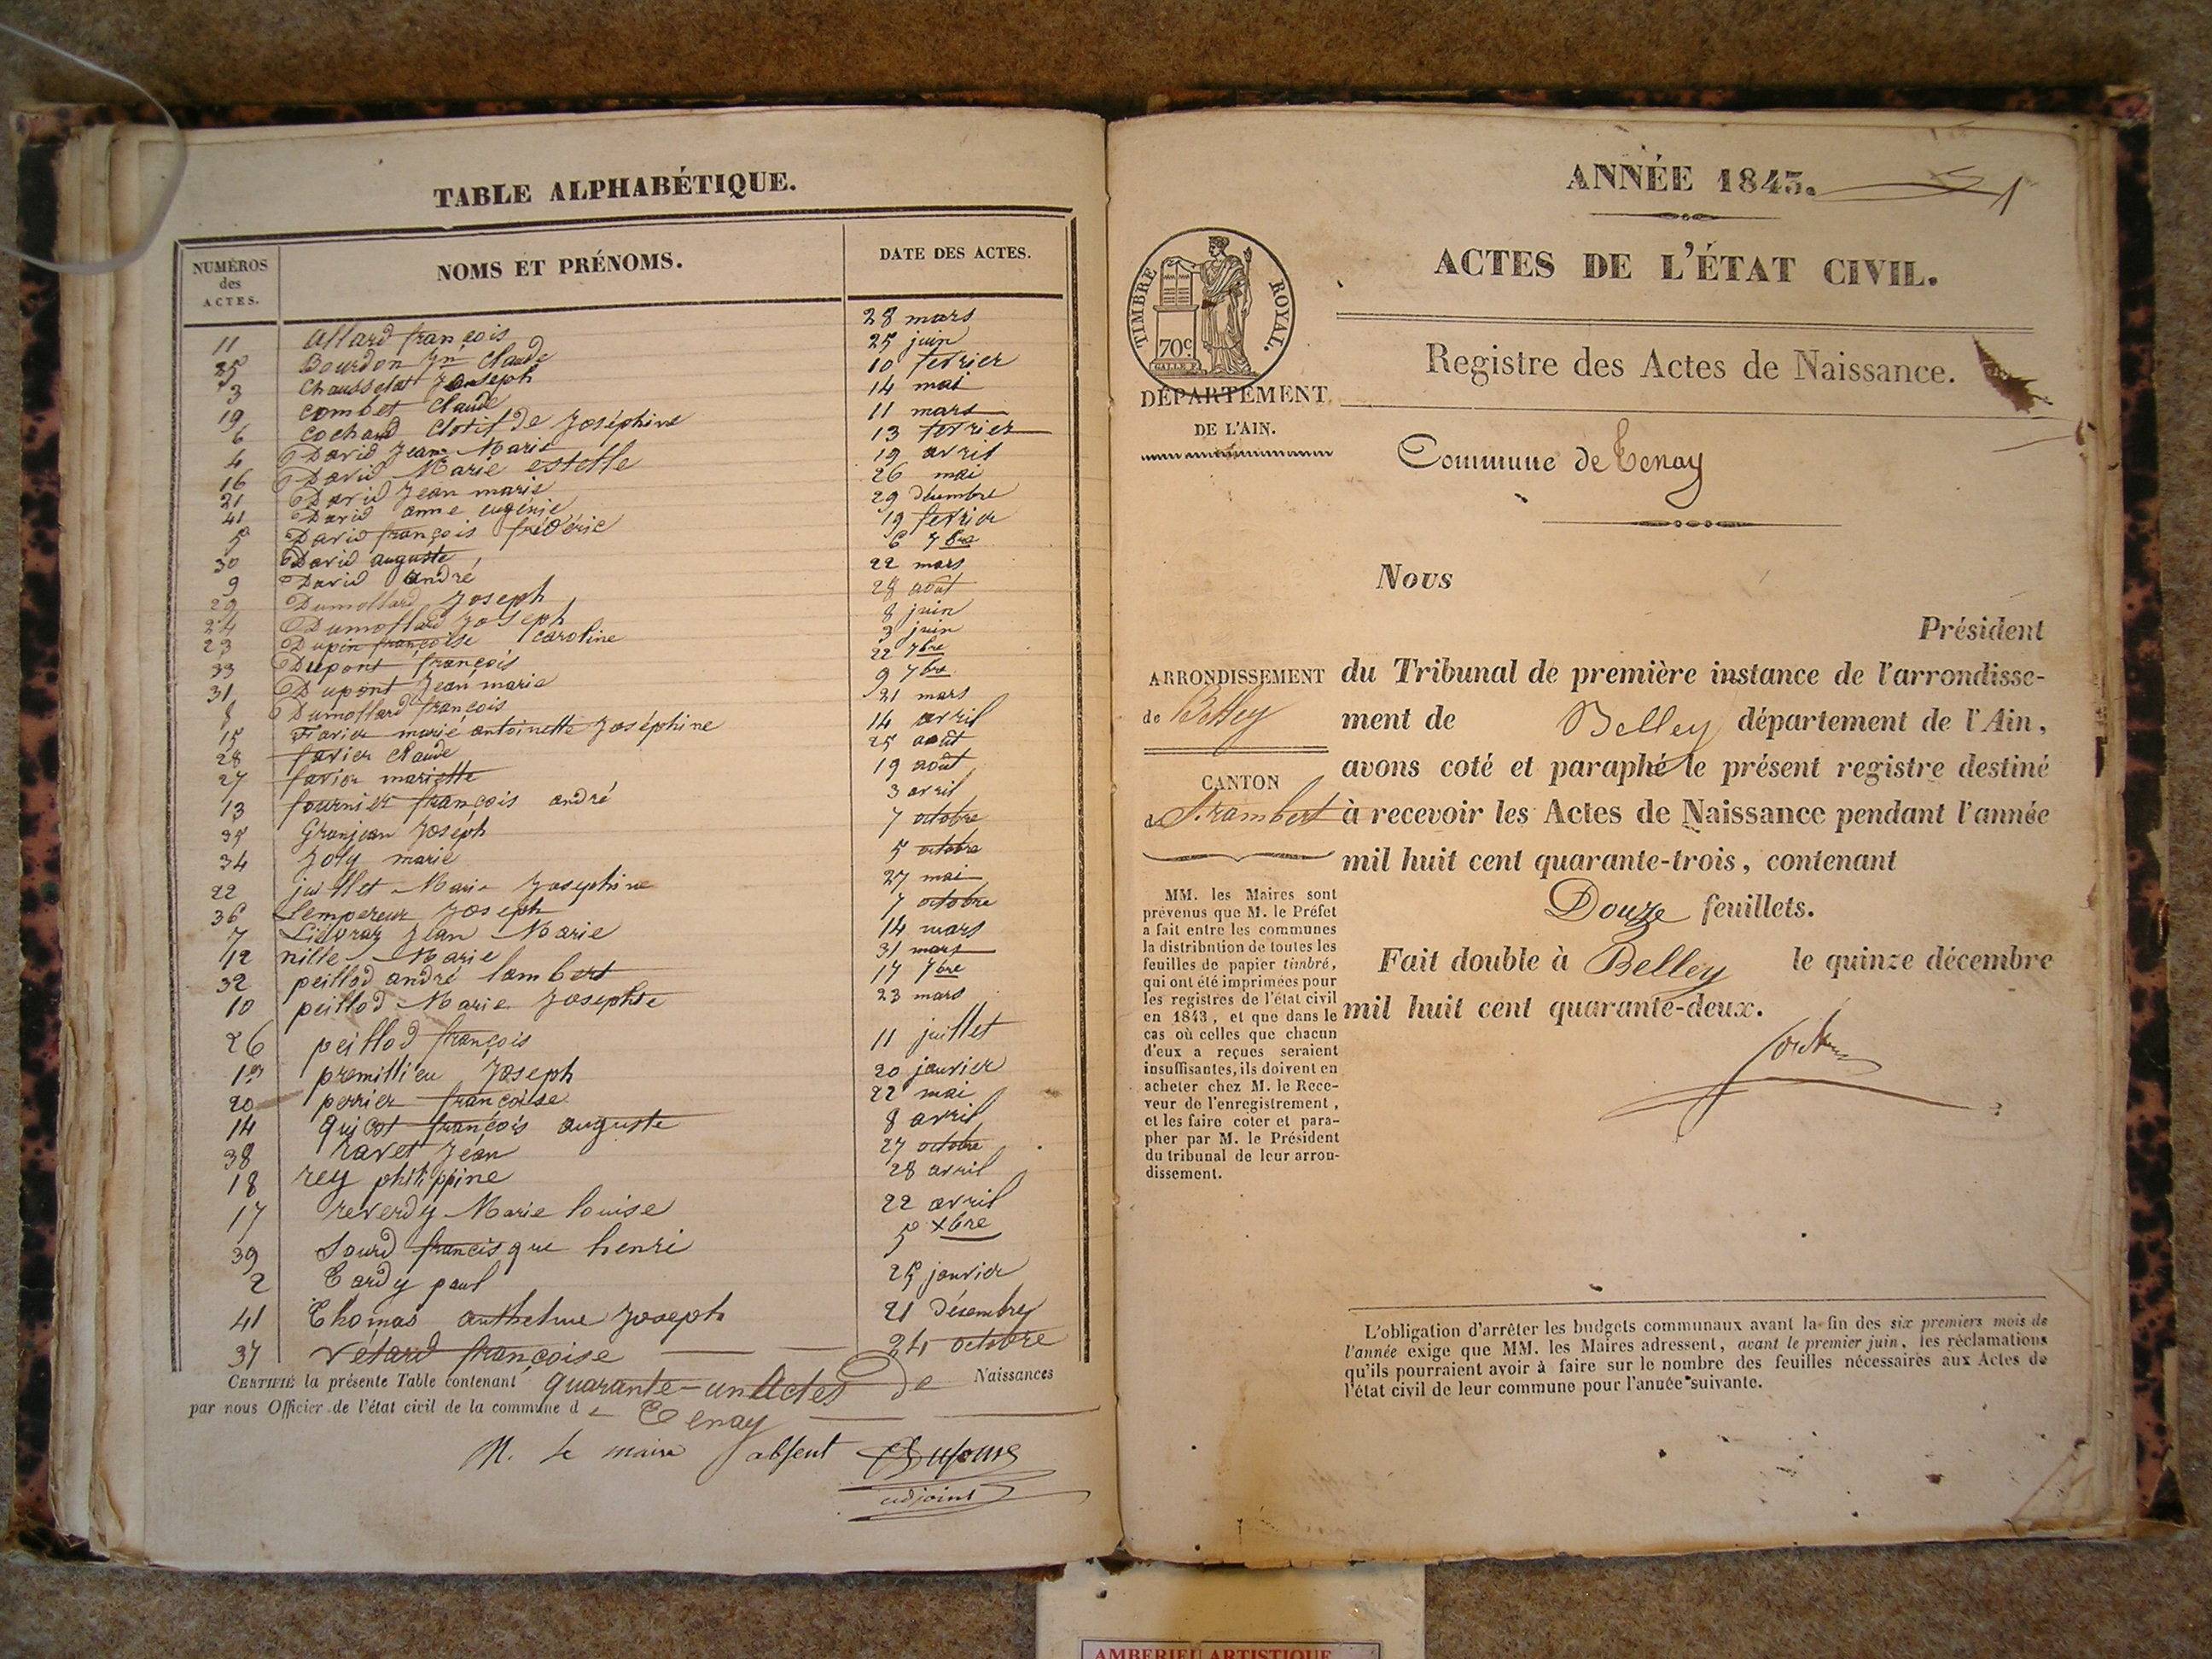 TABLE ALPHABÉTIQUE.
NUMÉROS des ACTES.
NOMS ET PRÉNOMS.
DATE DES ACTES.
11 Allard françois 28 mars
25 Bourdon Jn Claude 25 juin
3 Chausselat Joseph 10 fevrier
19 combet Claude 14 mai
6 cochard Clotilde Joséphine 11 mars
4 David Jean Marie 13 fevrier
16 David Marie estelle 19 avril
21 David Jean marie 26 mai
41 David anne eugénie 29 décembre
5 David françois frédéric 19 fevrier
30 David auguste 6 7bre
9 David andré 22 mars
29 Dumollard Joseph 28 août
24 Dumollard Joseph 8 juin
23 Dupin françoise caroline 3 juin
33 Dupont françois 22 7bre
31 Dupont Jean marie 9 7bre
8 Dumollard françois 21 mars
15 Favier marie antoinette Joséphine 14 avril
28 favier Claude 25 août
27 favier mariette 19 août
13 fournier françois andré 3 avril
35 Granjean Joseph 7 octobre
34 Joly marie 5 octobre
22 juillet Marie Josephine 27 mai
36 Lempereur Joseph 7 octobre
7 Jean Marie 14 mars
12 nille Marie 31 mars
32 peillod andré lambert 17 7bre
10 peillod Marie Josephte 23 mars
26 peillod françois 11 juillet
1er premillieu Joseph 20 janvier
20 perrier françoise 22 mai
14 françois auguste 8 avril
38 ravet Jean 27 octobre
18 rey philippine 28 avril
17 reverdy Marie louise 22 avril
39 Sourd francisque henri 5 xbre
2 Tardy paul 25 janvier
41 Thomas anthelme Joseph 21 Décembre
37 Vétard françoise 24 octobre
CERTIFIÉ la présente Table contenant quarante-un Actes de Naissances
par nous Officier de l'état civil de la commune d e Tenay
M. le maire absent Dufour
adjoint
ANNÉE 1843. 1
ACTES DE L'ÉTAT CIVIL.
TIMBRE ROYAL.
70c
DÉPARTEMENT
DE L'AIN.
Registre des Actes de Naissance.
Commune de Tenay
Nous
Président
ARRONDISSEMENT
de Belley
CANTON
de St rambert
du Tribunal de première instance de l'arrondisse-
ment de Belley département de l'Ain,
avons coté et paraphé le présent registre destiné
à recevoir les Actes de Naissance pendant l'année
mil huit cent quarante-trois, contenant
Douze feuillets.
Fait double à Belley le quinze décembre
mil huit cent quarante-deux.
MM. les Maires sont
prévenus que M. le Préfet
a fait entre les communes
la distribution de toutes les
feuilles de papier timbré,
qui ont été imprimées pour
les registres de l'état civil
en 1843, et que dans le
cas où celles que chacun
d'eux a reçues seraient
insuffisantes, ils doivent en
acheter chez M. le Rece-
veur de l'enregistrement,
et les faire coter et para-
pher par M. le Président
du tribunal de leur arron-
dissement.
L'obligation d'arrêter les budgets communaux avant la fin des six premiers mois de
l'année exige que MM. les Maires adressent, avant le premier juin, les réclamations
qu'ils pourraient avoir à faire sur le nombre des feuilles nécessaires aux Actes de
l'état civil de leur commune pour l'année suivante.
AMBERIEU ARTISTIQUE